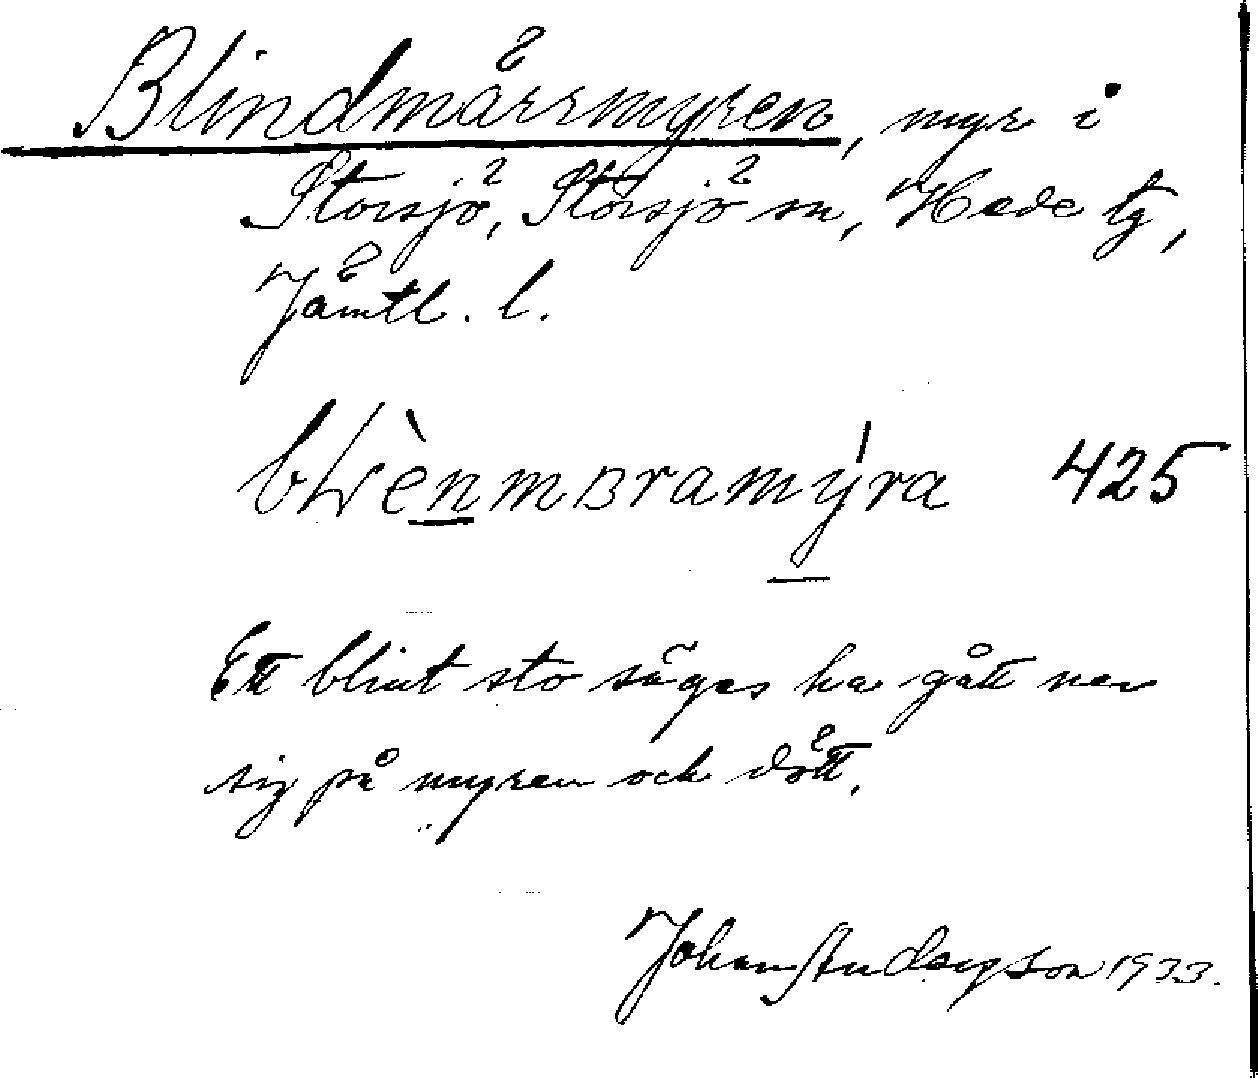 Blindmärrmyren, myr i
Storsjö, Storsjö sn, Hede tg,
Jämtl. l.
425
Ett blint sto säges ha gått ner
sig på myren och dött.
Johan Anderson 1933.